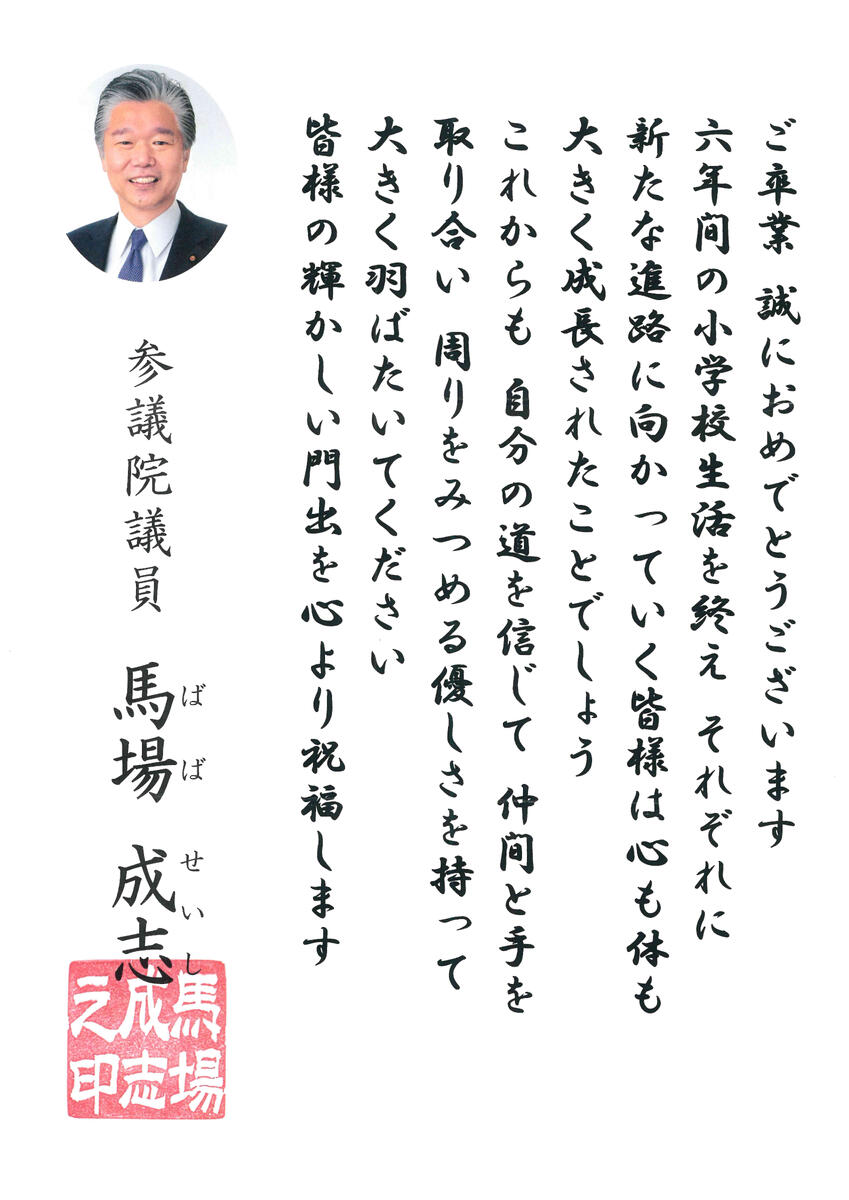 ご卒業 誠におめでとうございます
六年間の小学校生活を終え それぞれに
新たな進路に向かっていく皆様は心も体も
大きく成長されたことでしょう
これからも 自分の道を信じて 仲間と手を
取り合い 周りをみつめる優しさを持って
大きく羽ばたいてください
皆様の輝かしい門出を心より祝福します
参議院議員 馬場 成志
ばば せいし
馬場
成志
之印